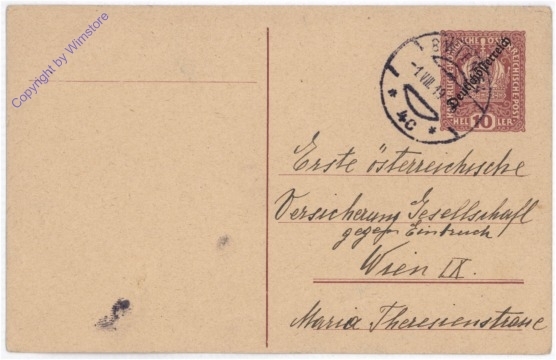 Copyright by Wimstore
Deutschösterreich
-1.VIII.19
* 4C *
10
HELLER
Erste österreichische
Versicherung Gesellschaft
gegen Einbruch
Wien IX.
Maria Theresienstrasse